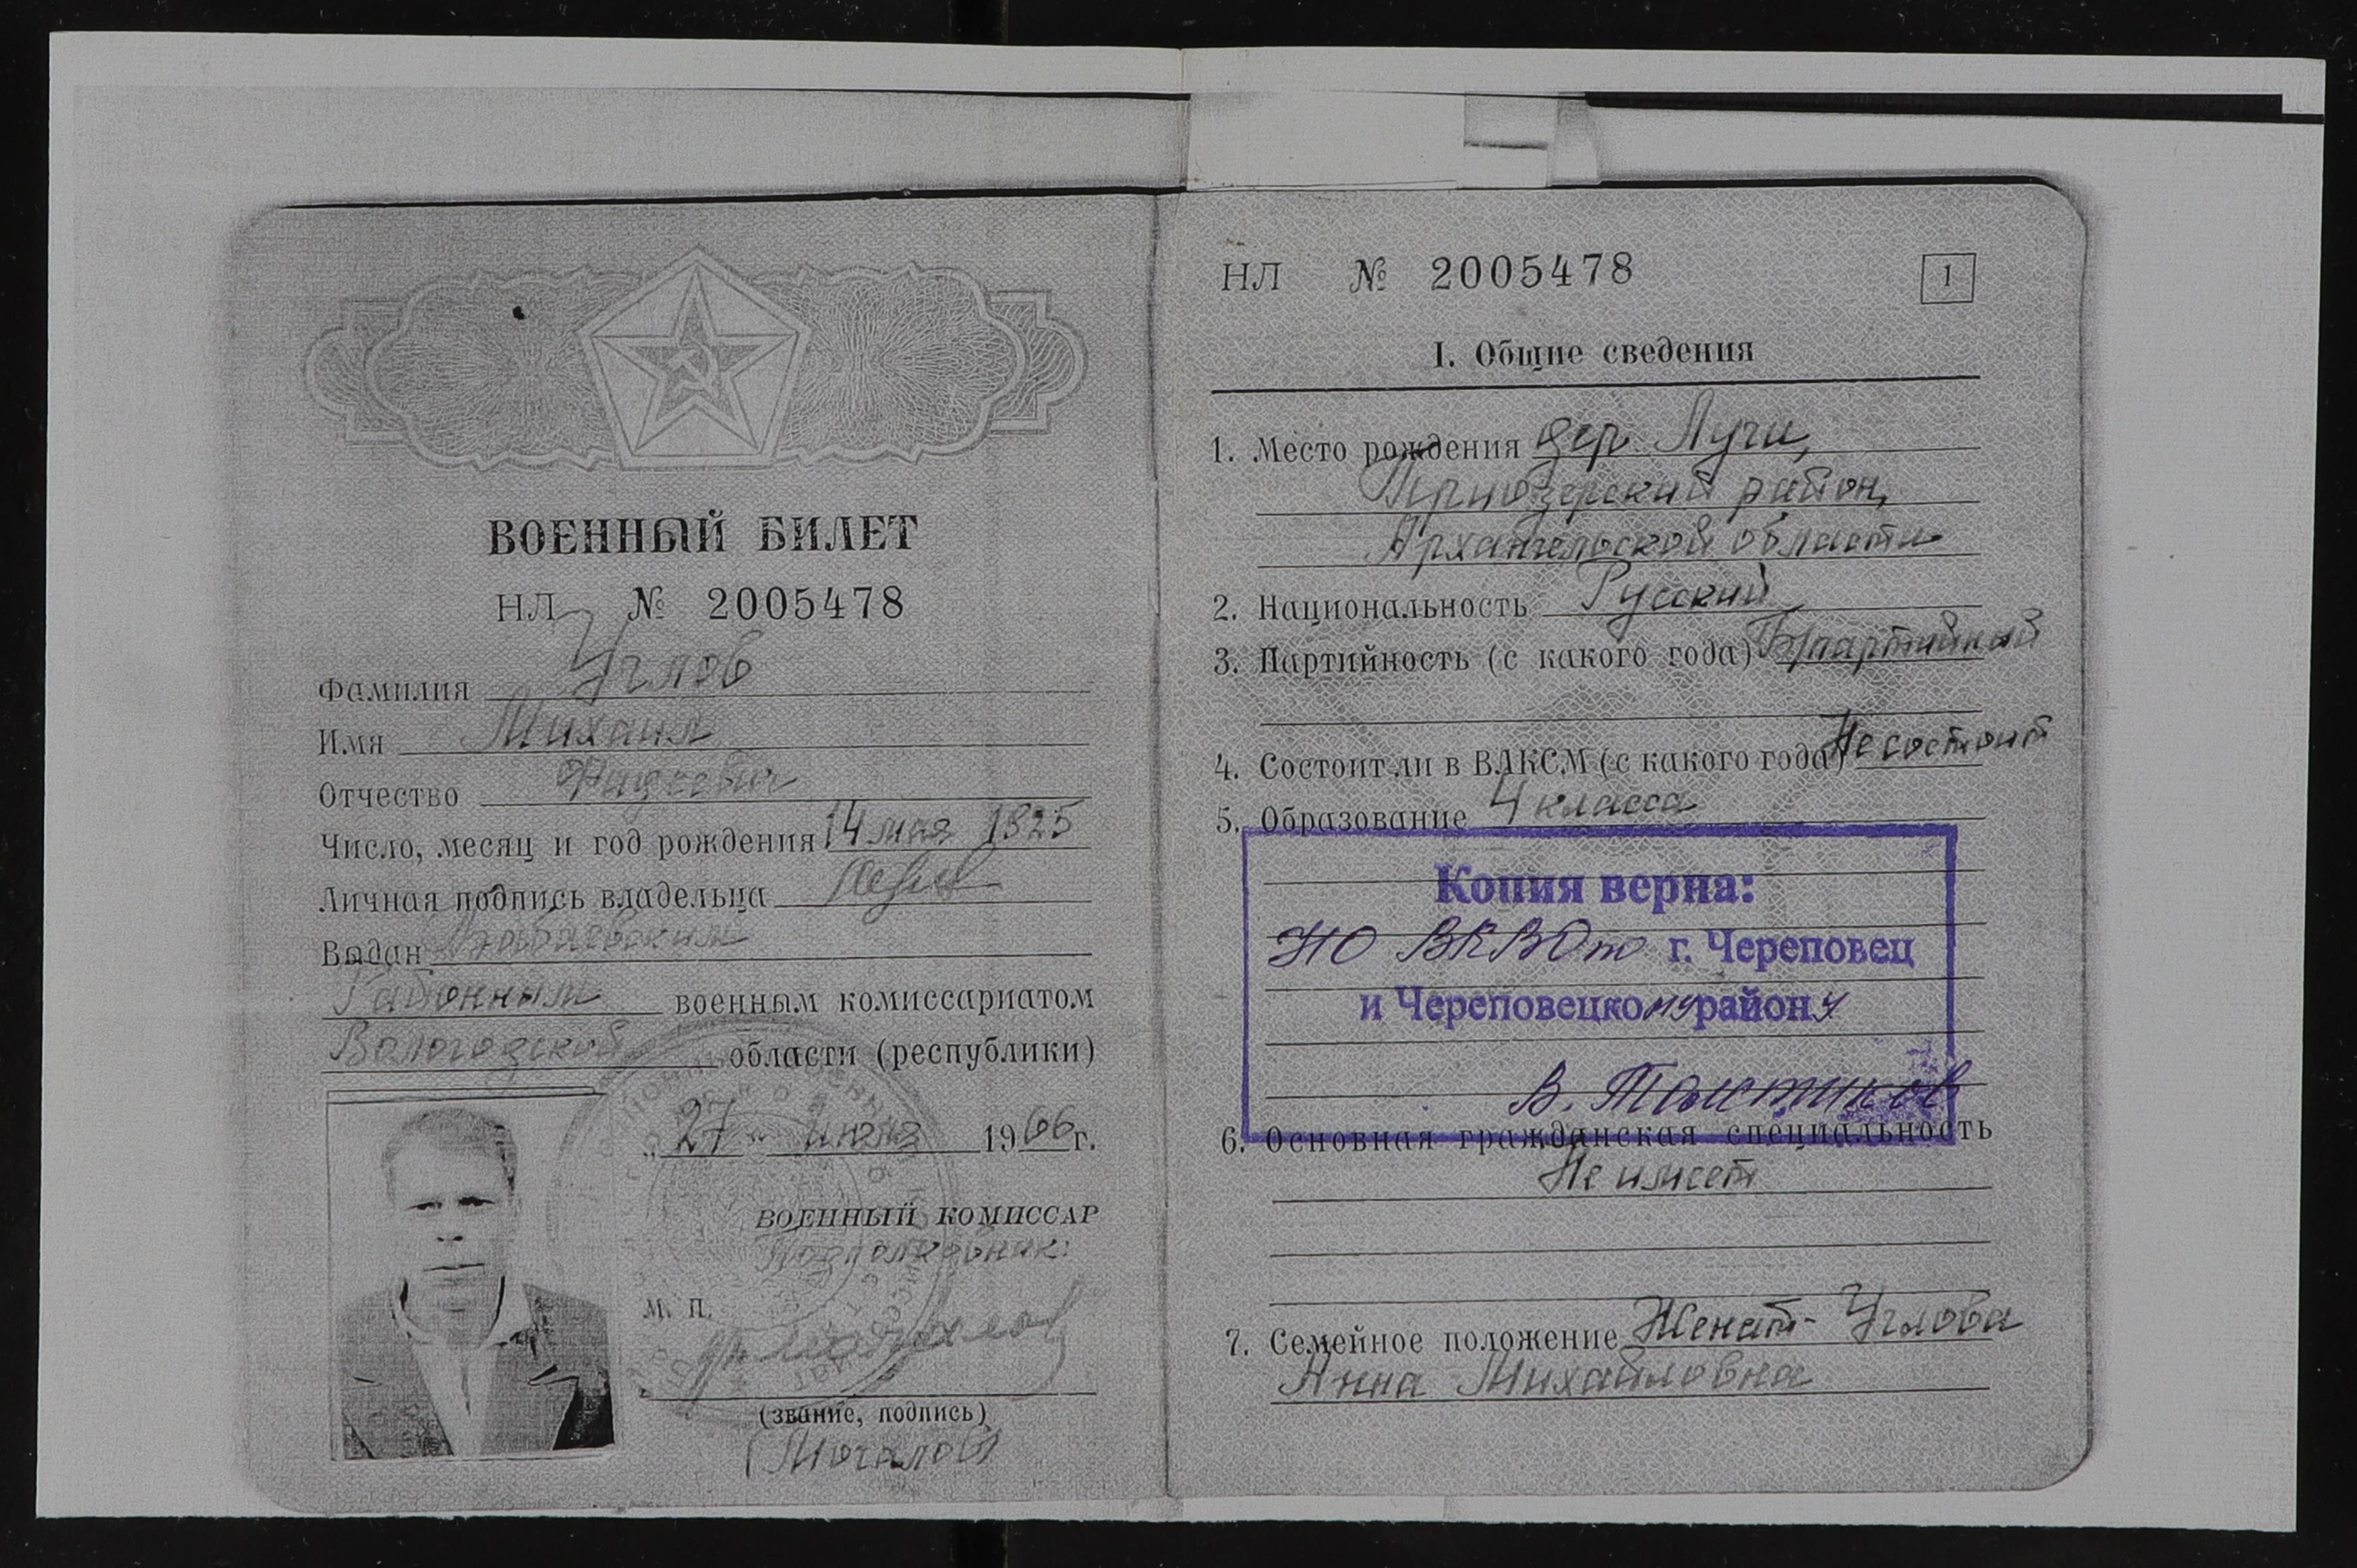 ВОЕННЫЙ БИЛЕТ
НЛ № 2005478
Фамилия Углов
Имя Михаил
Отчество Фадеевич
Число, месяц и год рождения 14 мая 1925
Личная подпись владельца
Выдан Бабаевским
Районным военным комиссариатом
Вологодской области (республики)
„27" июня 1966 г.
ВОЕННЫЙ КОМИССАР
Подполковник:
М. П.
(звание, подпись)
(Мочалов)
НЛ № 2005478
1
I. Общие сведения
1. Место рождения дер. Лучи,
Приозерский район,
Архангельской области
2. Национальность Русский
3. Партийность (с какого года) Б/партийный
4. Состоит ли в ВЛКСМ (с какого года) Не состоит
5. Образование 4 класса
Копия верна:
НО ВКВО по г. Череповец
и Череповецкому району
В. Толстиков
6. Основная гражданская специальность
Не имеет
7. Семейное положение Женат - Углова
Анна Михайловна